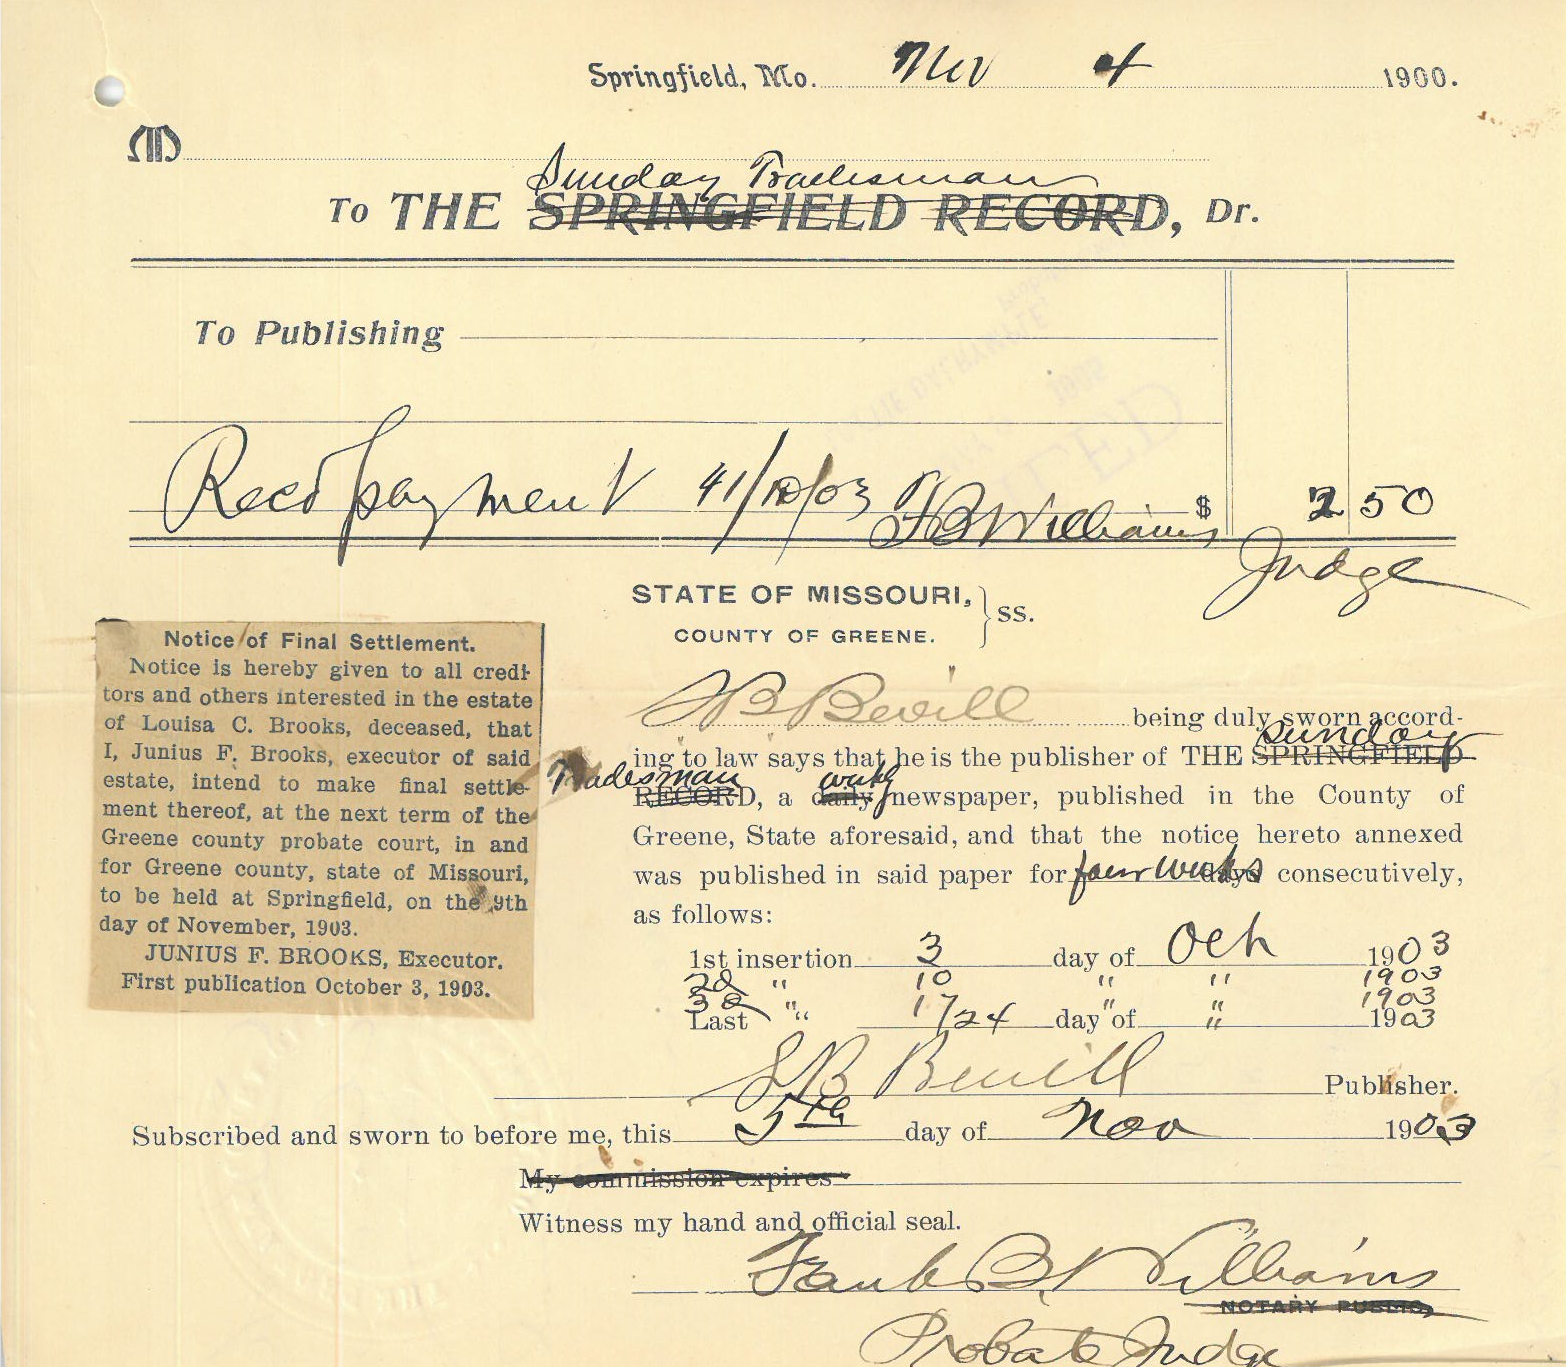 Springfield, Mo. Nov 4 1900.
M
Sunday Tradesman
To THE SPRINGFIELD RECORD, Dr.
To Publishing
Recd payment 41/10/03 F B Williams $ 2 50
Judge
STATE OF MISSOURI, } ss.
COUNTY OF GREENE.
Notice of Final Settlement.
Notice is hereby given to all credi-
tors and others interested in the estate
of Louisa C. Brooks, deceased, that
I, Junius F. Brooks, executor of said
estate, intend to make final settle-
ment thereof, at the next term of the
Greene county probate court, in and
for Greene county, state of Missouri,
to be held at Springfield, on the 9th
day of November, 1903.
JUNIUS F. BROOKS, Executor.
First publication October 3, 1903.
B Bevill being duly sworn accord-
Sunday
ing to law says that he is the publisher of THE SPRINGFIELD
Tradesman weekly
RECORD, a daily newspaper, published in the County of
Greene, State aforesaid, and that the notice hereto annexed
was published in said paper for four weeks days consecutively,
as follows:
1st insertion 3 day of Oct 1903
2d " 10 " " 1903
3d " 17 " " 1903
Last " 24 day of " 1903
B Bevill Publisher.
Subscribed and sworn to before me, this 5th day of Nov 1903
My commission expires
Witness my hand and official seal.
Frank B. Williams
NOTARY PUBLIC,
Probate Judge